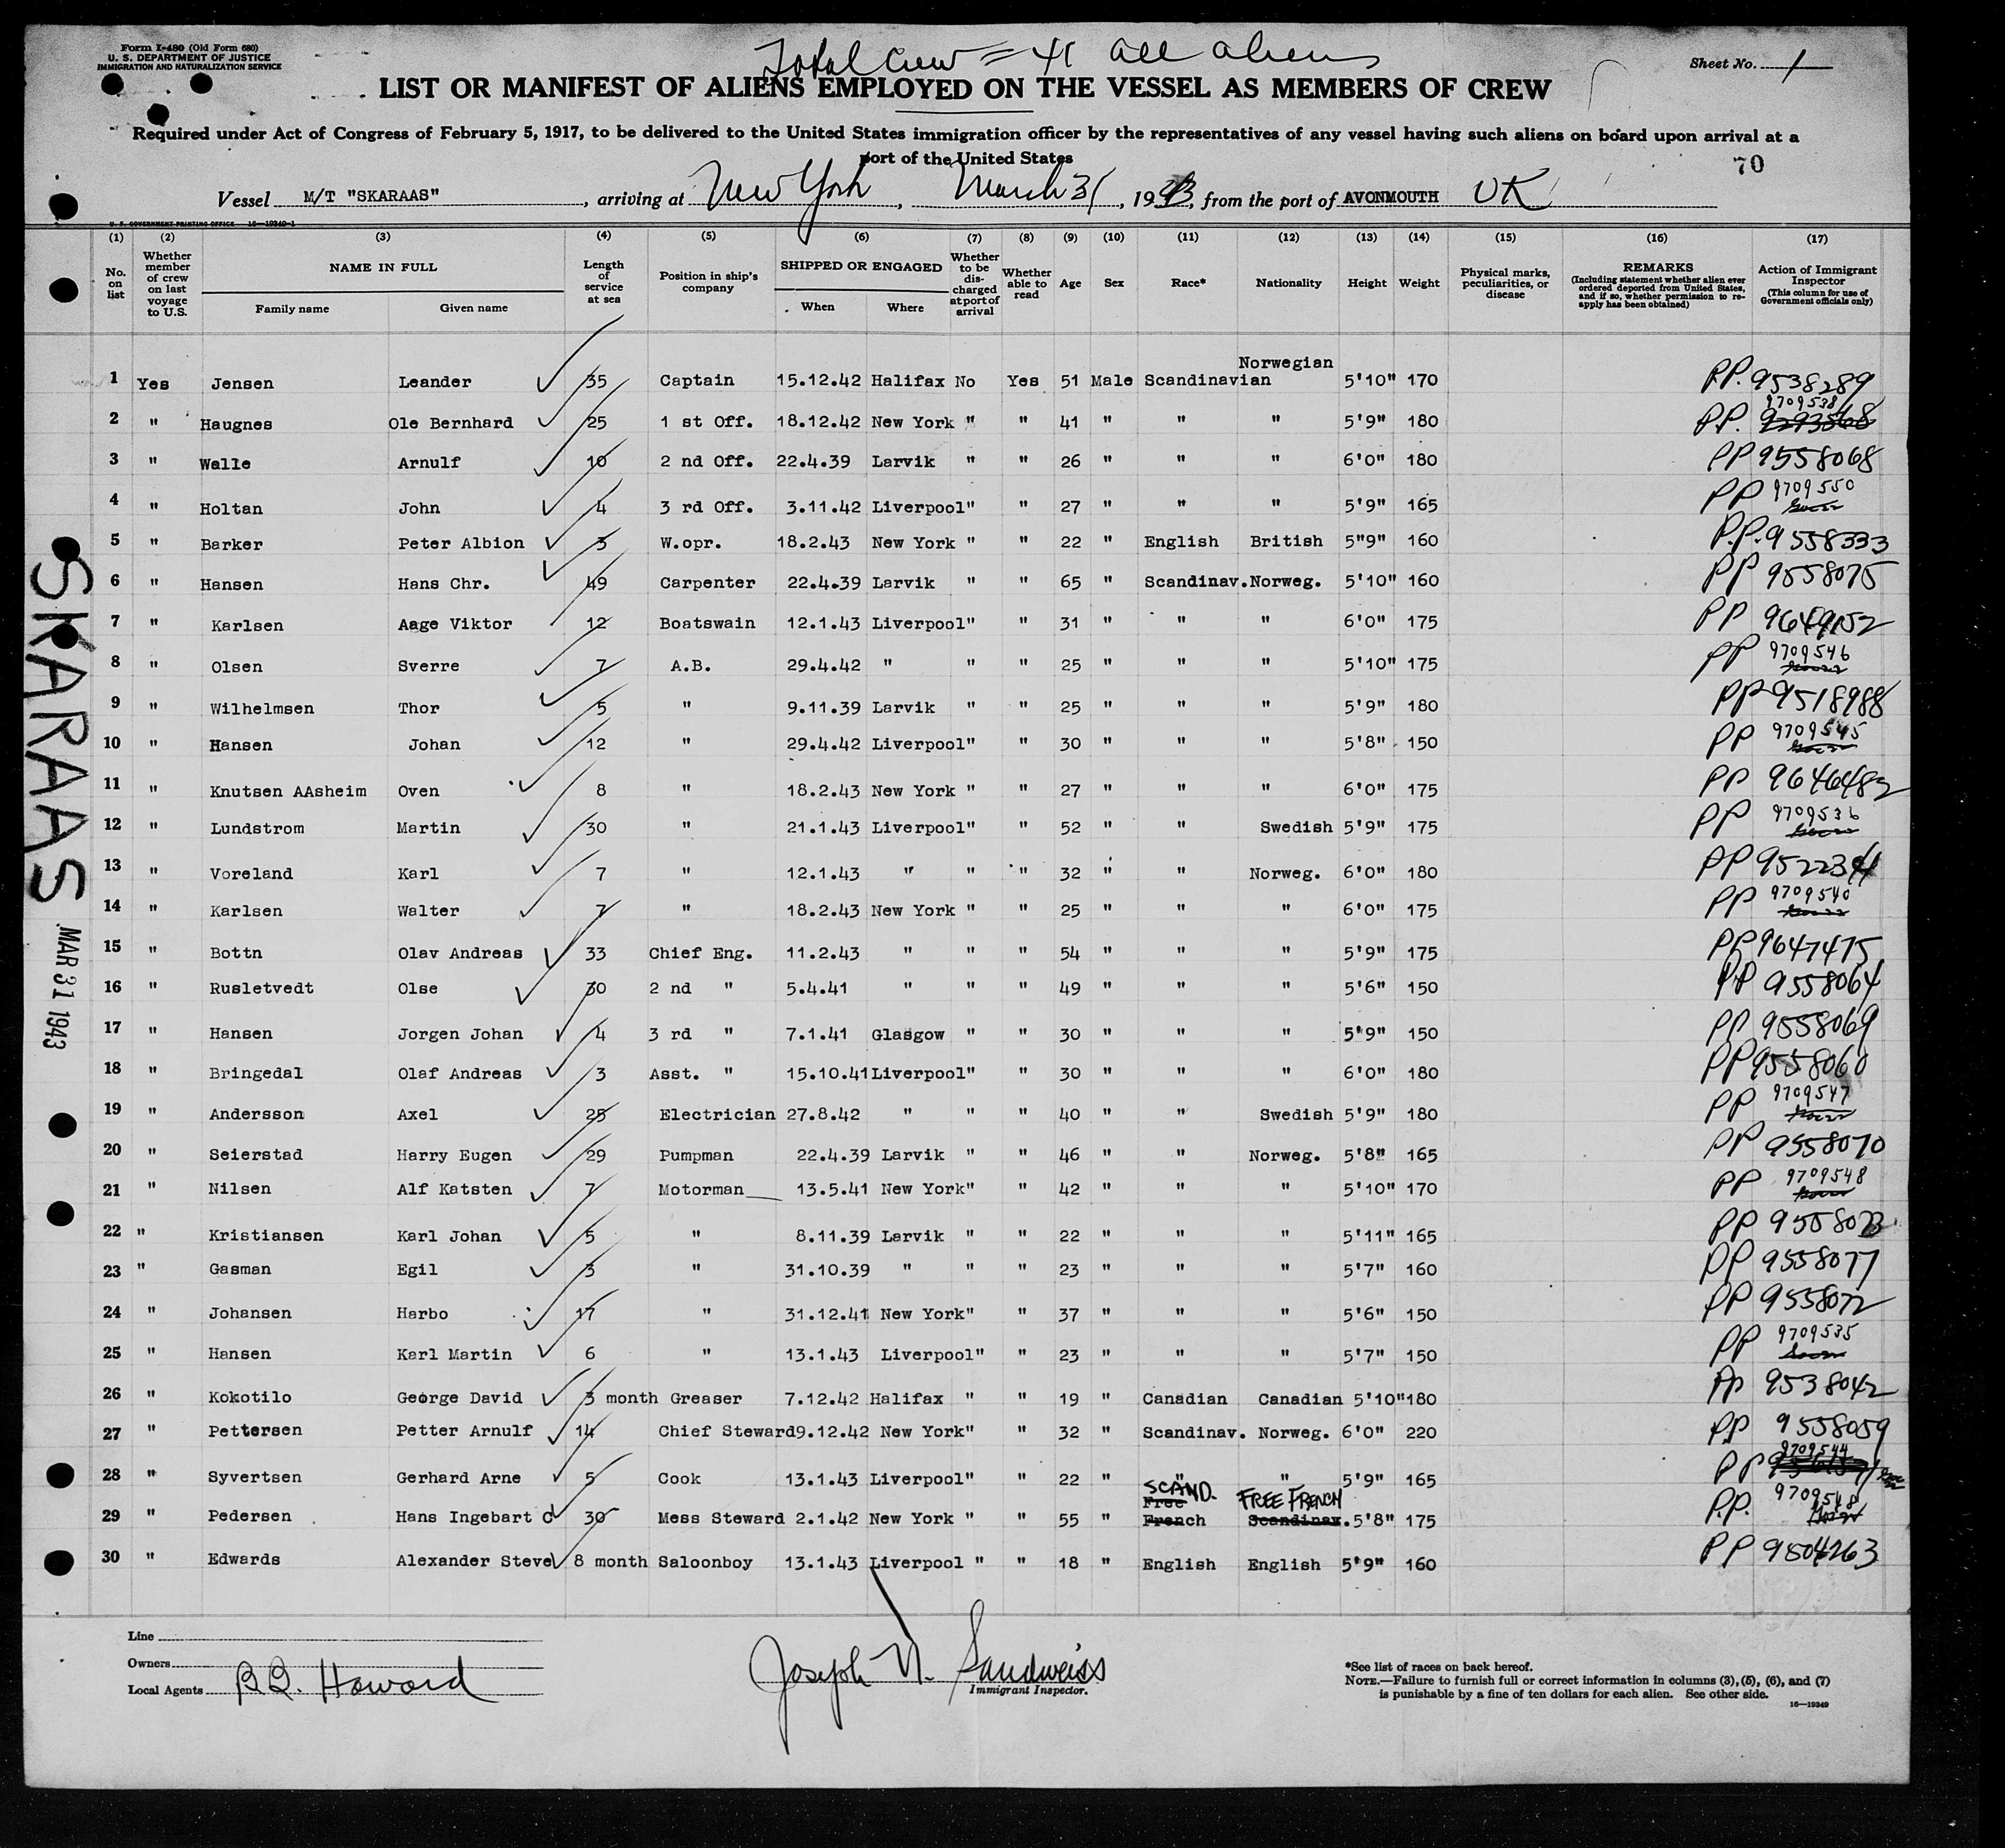 Form I-480 (Old Form 680)
U. S. DEPARTMENT OF JUSTICE
IMMIGRATION AND NATURALIZATION SERVICE
Total Crew = 41 all aliens
Sheet No. 1
LIST OR MANIFEST OF ALIENS EMPLOYED ON THE VESSEL AS MEMBERS OF CREW
Required under Act of Congress of February 5, 1917, to be delivered to the United States immigration officer by the representatives of any vessel having such aliens on board upon arrival at a
port of the United States
70
Vessel M/T "SKARAAS", arriving at New York, March 31, 1943, from the port of AVONMOUTH UK
U. S. GOVERNMENT PRINTING OFFICE 16—19349-1
(1) (2) (3) (4) (5) (6) (7) (8) (9) (10) (11) (12) (13) (14) (15) (16) (17)
No. on list | Whether member of crew on last voyage to U.S. | NAME IN FULL Family name Given name | Length of service at sea | Position in ship's company | SHIPPED OR ENGAGED When Where | Whether to be discharged at port of arrival | Whether able to read | Age | Sex | Race* | Nationality | Height | Weight | Physical marks, peculiarities, or disease | REMARKS (Including statement whether alien ever ordered deported from United States, and if so, whether permission to re-apply has been obtained) | Action of Immigrant Inspector (This column for use of Government officials only)
1 Yes Jensen Leander 35 Captain 15.12.42 Halifax No Yes 51 Male Scandinavian Norwegian 5'10" 170 P.P. 9538289
2 " Haugnes Ole Bernhard 25 1 st Off. 18.12.42 New York " " 41 " " " 5'9" 180 P.P. 9709538
3 " Walle Arnulf 10 2 nd Off. 22.4.39 Larvik " " 26 " " " 6'0" 180 PP 9558068
4 " Holtan John 4 3 rd Off. 3.11.42 Liverpool " " 27 " " " 5'9" 165 PP 9709550
5 " Barker Peter Albion 3 W.opr. 18.2.43 New York " " 22 " English British 5"9" 160 P.P. 9558333
6 " Hansen Hans Chr. 49 Carpenter 22.4.39 Larvik " " 65 " Scandinav. Norweg. 5'10" 160 PP 9558075
7 " Karlsen Aage Viktor 12 Boatswain 12.1.43 Liverpool " " 31 " " " 6'0" 175 PP 9649152
8 " Olsen Sverre 7 A.B. 29.4.42 " " " 25 " " " 5'10" 175 PP 9709546
9 " Wilhelmsen Thor 5 " 9.11.39 Larvik " " 25 " " " 5'9" 180 PP 9518988
10 " Hansen Johan 12 " 29.4.42 Liverpool " " 30 " " " 5'8" 150 PP 9709545
11 " Knutsen AAsheim Oven 8 " 18.2.43 New York " " 27 " " " 6'0" 175 PP
12 " Lundstrom Martin 30 " 21.1.43 Liverpool " " 52 " " Swedish 5'9" 175 PP 9709536
13 " Voreland Karl 7 " 12.1.43 " " " 32 " " Norweg. 6'0" 180 PP
14 " Karlsen Walter 7 " 18.2.43 New York " " 25 " " " 6'0" 175 PP 9709540
15 " Bottn Olav Andreas 33 Chief Eng. 11.2.43 " " " 54 " " " 5'9" 175 PP 9647475
16 " Rusletvedt Olse 30 2 nd " 5.4.41 " " " 49 " " " 5'6" 150 PP 9558064
17 " Hansen Jorgen Johan 4 3 rd " 7.1.41 Glasgow " " 30 " " " 5'9" 150 PP 9558069
18 " Bringedal Olaf Andreas 3 Asst. " 15.10.41 Liverpool " " 30 " " " 6'0" 180 PP 9558060
19 " Andersson Axel 25 Electrician 27.8.42 " " " 40 " " Swedish 5'9" 180 PP 9709547
20 " Seierstad Harry Eugen 29 Pumpman 22.4.39 Larvik " " 46 " " Norweg. 5'8" 165 PP 9558070
21 " Nilsen Alf Katsten 7 Motorman 13.5.41 New York " " 42 " " " 5'10" 170 PP 9709548
22 " Kristiansen Karl Johan 5 " 8.11.39 Larvik " " 22 " " " 5'11" 165 PP
23 " Gasman Egil 3 " 31.10.39 " " " 23 " " " 5'7" 160 PP 9558077
24 " Johansen Harbo 17 " 31.12.41 New York " " 37 " " " 5'6" 150 PP 9558072
25 " Hansen Karl Martin 6 " 13.1.43 Liverpool " " 23 " " " 5'7" 150 PP 9709535
26 " Kokotilo George David 3 month Greaser 7.12.42 Halifax " " 19 " Canadian Canadian 5'10" 180 PP 9538042
27 " Pettersen Petter Arnulf 14 Chief Steward 9.12.42 New York " " 32 " Scandinav. Norweg. 6'0" 220 PP 9558059
28 " Syvertsen Gerhard Arne 5 Cook 13.1.43 Liverpool " " 22 " " " 5'9" 165 PP 9709544
29 " Pedersen Hans Ingebart C 30 Mess Steward 2.1.42 New York " " 55 " SCAND. Free French FREE FRENCH Scandinav. 5'8" 175 P.P.
30 " Edwards Alexander Steve 8 month Saloonboy 13.1.43 Liverpool " " 18 " English English 5'9" 160 PP 9504263
SKARAAS
MAR 31 1943
Line
Owners
Local Agents B.B. Howard
Joseph N. Sandweiss
Immigrant Inspector.
*See list of races on back hereof.
NOTE.—Failure to furnish full or correct information in columns (3), (5), (6), and (7)
is punishable by a fine of ten dollars for each alien. See other side.
16—19349